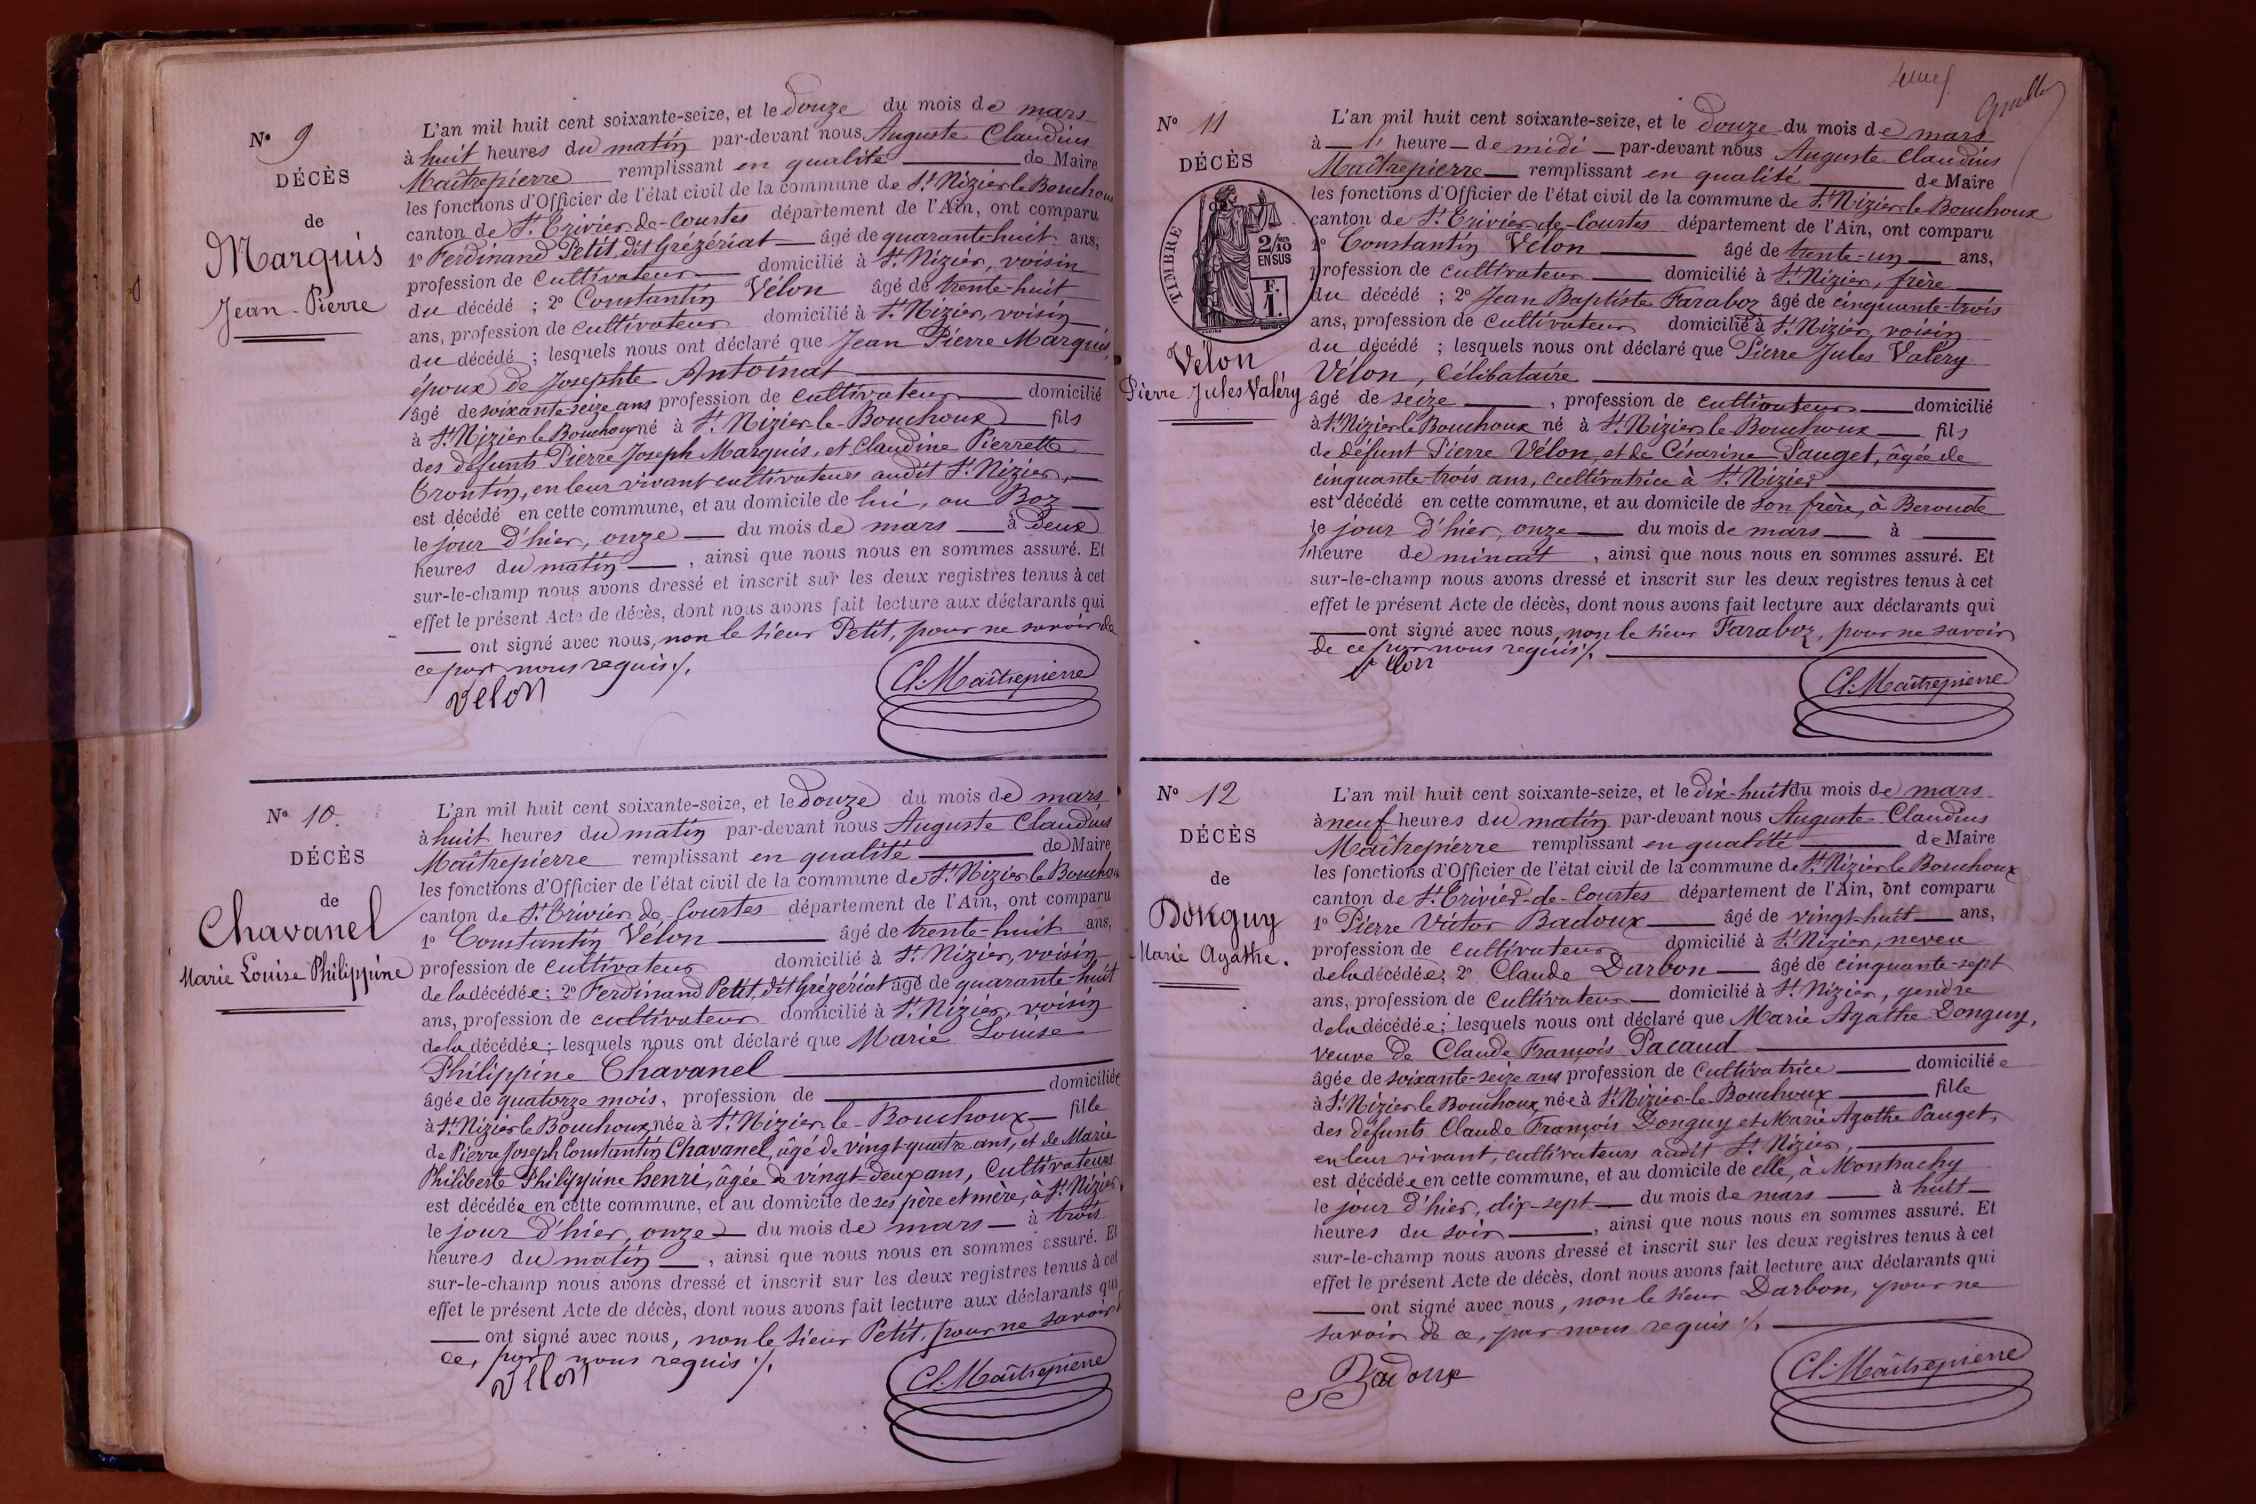 N° 9
DÉCÈS
de
Marquis
Jean-Pierre
L'an mil huit cent soixante-seize, et le douze du mois de mars
à huit heures du matin par-devant nous Auguste Claudius
Maîtrepierre remplissant en qualité de Maire
les fonctions d'Officier de l'état civil de la commune de St Nizier le Bouchoux
canton de St Trivier-de-Courtes département de l'Ain, ont comparu
1° Ferdinand Petit dit Grézériat âgé de quarante-huit ans,
profession de cultivateur domicilié à St Nizier, voisin
du décédé ; 2° Constantin Vélon âgé de trente-huit
ans, profession de cultivateur domicilié à St Nizier, voisin
du décédé ; lesquels nous ont déclaré que Jean Pierre Marquis,
époux de Josephte Antoinat
âgé de soixante-seize ans profession de cultivateur domicilié
à St Nizier le Bouchoux né à St Nizier-le-Bouchoux fils
des défunts Pierre Joseph Marquis, et Claudine Pierrette
Trontin, en leur vivant cultivateurs audit St Nizier,
est décédé en cette commune, et au domicile de lui, au Boz
le jour d'hier, onze du mois de mars à deux
heures du matin , ainsi que nous nous en sommes assuré. Et
sur-le-champ nous avons dressé et inscrit sur les deux registres tenus à cet
effet le présent Acte de décès, dont nous avons fait lecture aux déclarants qui
ont signé avec nous, non le sieur Petit, pour ne savoir de
ce par nous requis ./.
Velon
Cl. Maîtrepierre
N° 10
DÉCÈS
de
Chavanel
Marie Louise Philippine
L'an mil huit cent soixante-seize, et le douze du mois de mars
à huit heures du matin par-devant nous Auguste Claudius
Maîtrepierre remplissant en qualité de Maire
les fonctions d'Officier de l'état civil de la commune de St Nizier le Bouchoux
canton de St Trivier-de-Courtes département de l'Ain, ont comparu
1° Constantin Vélon âgé de trente-huit ans,
profession de cultivateur domicilié à St Nizier, voisin
de la décédée ; 2° Ferdinand Petit, dit Grézériat âgé de quarante-huit
ans, profession de cultivateur domicilié à St Nizier, voisin
de la décédée ; lesquels nous ont déclaré que Marie Louise
Philippine Chavanel
âgée de quatorze mois, profession de domiciliée
à St Nizier le Bouchoux, née à St Nizier-le-Bouchoux fille
de Pierre Joseph Constantin Chavanel, âgé de vingt-quatre ans, et de Marie
Philiberte Philippine henri, âgée de vingt-deux ans, Cultivateurs
est décédée en cette commune, et au domicile de ses père et mère, à St Nizier,
le jour d'hier, onze du mois de mars à trois
heures du matin , ainsi que nous nous en sommes assuré. Et
sur-le-champ nous avons dressé et inscrit sur les deux registres tenus à cet
effet le présent Acte de décès, dont nous avons fait lecture aux déclarants qui
ont signé avec nous, non le sieur Petit, pour ne savoir
ce, par nous requis ./.
Velon
Cl. Maîtrepierre
N° 11
DÉCÈS
TIMBRE
2/10
EN SUS
F.
1.
Vélon
Pierre Jules Valéry
L'an mil huit cent soixante-seize, et le douze du mois de mars
à 1 heure de midi par-devant nous Auguste Claudius
Maîtrepierre remplissant en qualité de Maire
les fonctions d'Officier de l'état civil de la commune de St Nizier le Bouchoux
canton de St Trivier-de-Courtes département de l'Ain, ont comparu
1° Constantin Vélon âgé de trente-un ans,
profession de cultivateur domicilié à St Nizier, frère
du décédé ; 2° Jean Baptiste Faraboz âgé de cinquante-trois
ans, profession de cultivateur domicilié à St Nizier, voisin
du décédé ; lesquels nous ont déclaré que Pierre Jules Valéry
Vélon, célibataire
âgé de seize , profession de cultivateur domicilié
à St Nizier le Bouchoux né à St Nizier le Bouchoux fils
de défunt Pierre Vélon, et de Césarine Pauget, âgée de
cinquante-trois ans, cultivatrice à St Nizier
est décédé en cette commune, et au domicile de son frère, à Beroude
le jour d'hier, onze du mois de mars à
heure de minuit , ainsi que nous nous en sommes assuré. Et
sur-le-champ nous avons dressé et inscrit sur les deux registres tenus à cet
effet le présent Acte de décès, dont nous avons fait lecture aux déclarants qui
ont signé avec nous, non le sieur Faraboz, pour ne savoir
de ce par nous requis ./.
Velon
Cl. Maîtrepierre
N° 12
DÉCÈS
de
Donguy
Marie Agathe.
L'an mil huit cent soixante-seize, et le dix-huit du mois de mars
à neuf heures du matin par-devant nous Auguste Claudius
Maîtrepierre remplissant en qualité de Maire
les fonctions d'Officier de l'état civil de la commune de St Nizier le Bouchoux
canton de St Trivier-de-Courtes département de l'Ain, ont comparu
1° Pierre Victor Badoux âgé de vingt-huit ans,
profession de cultivateur domicilié à St Nizier, neveu
de la décédée ; 2° Claude Darbon âgé de cinquante-sept
ans, profession de Cultivateur domicilié à St Nizier, gendre
de la décédée ; lesquels nous ont déclaré que Marie Agathe Donguy,
veuve de Claude François Pacaud
âgée de soixante-seize ans profession de Cultivatrice domiciliée
à St Nizier le Bouchoux, née à St Nizier-le-Bouchoux fille
des défunts Claude François Donguy et Marie Agathe Pauget,
en leur vivant, cultivateurs audit St Nizier,
est décédée en cette commune, et au domicile de elle, à Montrachy
le jour d'hier, dix-sept du mois de mars à huit
heures du soir , ainsi que nous nous en sommes assuré. Et
sur-le-champ nous avons dressé et inscrit sur les deux registres tenus à cet
effet le présent Acte de décès, dont nous avons fait lecture aux déclarants qui
ont signé avec nous, non le sieur Darbon, pour ne
savoir de ce, par nous requis ./.
Badoux
Cl. Maîtrepierre